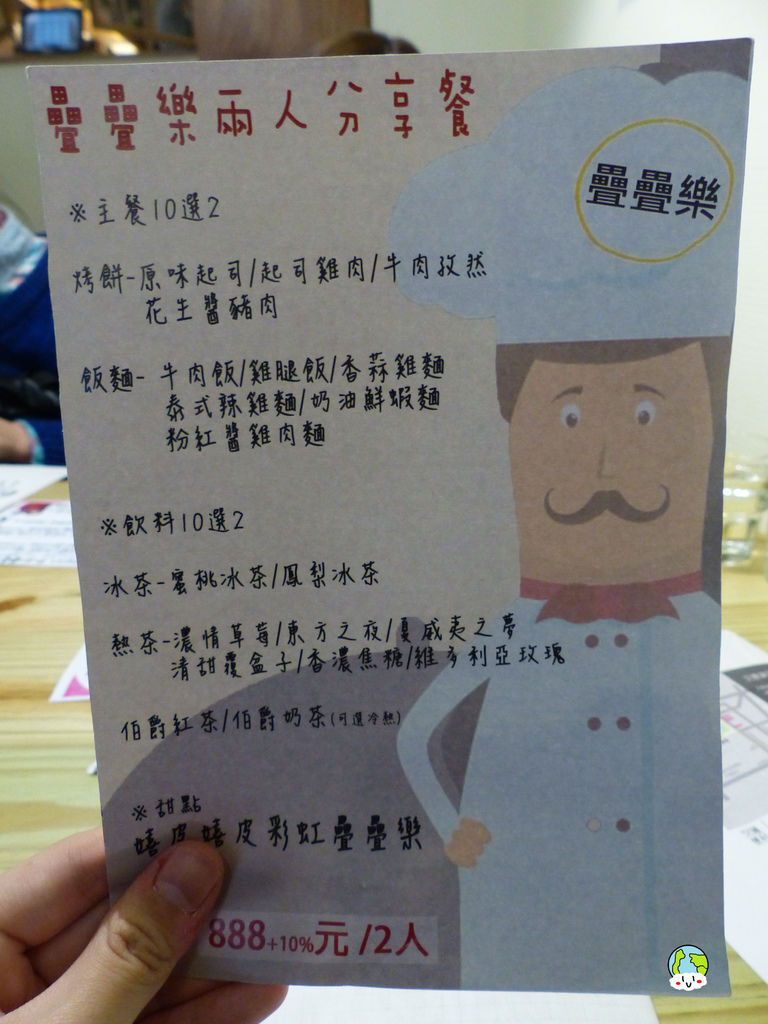 疊疊樂兩人分享餐
疊疊樂
※主餐10選2
烤餅-原味起司/起司雞肉/牛肉孜然
花生醬豬肉
飯麵- 牛肉飯/雞腿飯/香蒜雞麵
泰式辣雞麵/奶油鮮蝦麵
粉紅醬雞肉麵
※飲料10選2
冰茶-蜜桃冰茶/鳳梨冰茶
熱茶-濃情草莓/東方之夜/夏威夷之夢
清甜覆盆子/香濃焦糖/維多利亞玫瑰
伯爵紅茶/伯爵奶茶(可選冷熱)
※甜點
嬉皮嬉皮彩虹疊疊樂
888+10%元/2人